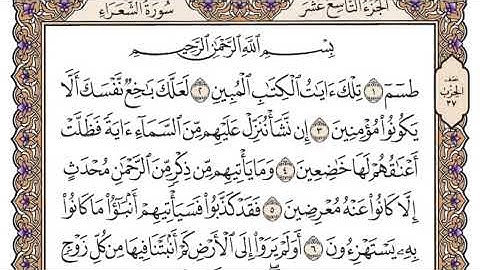 الجُزْءُ التَّاسِعَ عَشَرَ
سُورَةُ الشُّعَرَاءِ
بِسْمِ ٱللَّهِ ٱلرَّحْمَٰنِ ٱلرَّحِيمِ
طسٓمٓ ١ تِلْكَ ءَايَٰتُ ٱلْكِتَٰبِ ٱلْمُبِينِ ٢ لَعَلَّكَ بَٰخِعٌ نَّفْسَكَ أَلَّا
يَكُونُوا۟ مُؤْمِنِينَ ٣ إِن نَّشَأْ نُنَزِّلْ عَلَيْهِم مِّنَ ٱلسَّمَآءِ ءَايَةً فَظَلَّتْ
أَعْنَٰقُهُمْ لَهَا خَٰضِعِينَ ٤ وَمَا يَأْتِيهِم مِّن ذِكْرٍ مِّنَ ٱلرَّحْمَٰنِ مُحْدَثٍ
إِلَّا كَانُوا۟ عَنْهُ مُعْرِضِينَ ٥ فَقَدْ كَذَّبُوا۟ فَسَيَأْتِيهِمْ أَنۢبَٰٓؤُا۟ مَا كَانُوا۟
بِهِۦ يَسْتَهْزِءُونَ ٦ أَوَلَمْ يَرَوْا۟ إِلَى ٱلْأَرْضِ كَمْ أَنۢبَتْنَا فِيهَا مِن كُلِّ زَوْجٍ
نصف
الحزب
٣٧